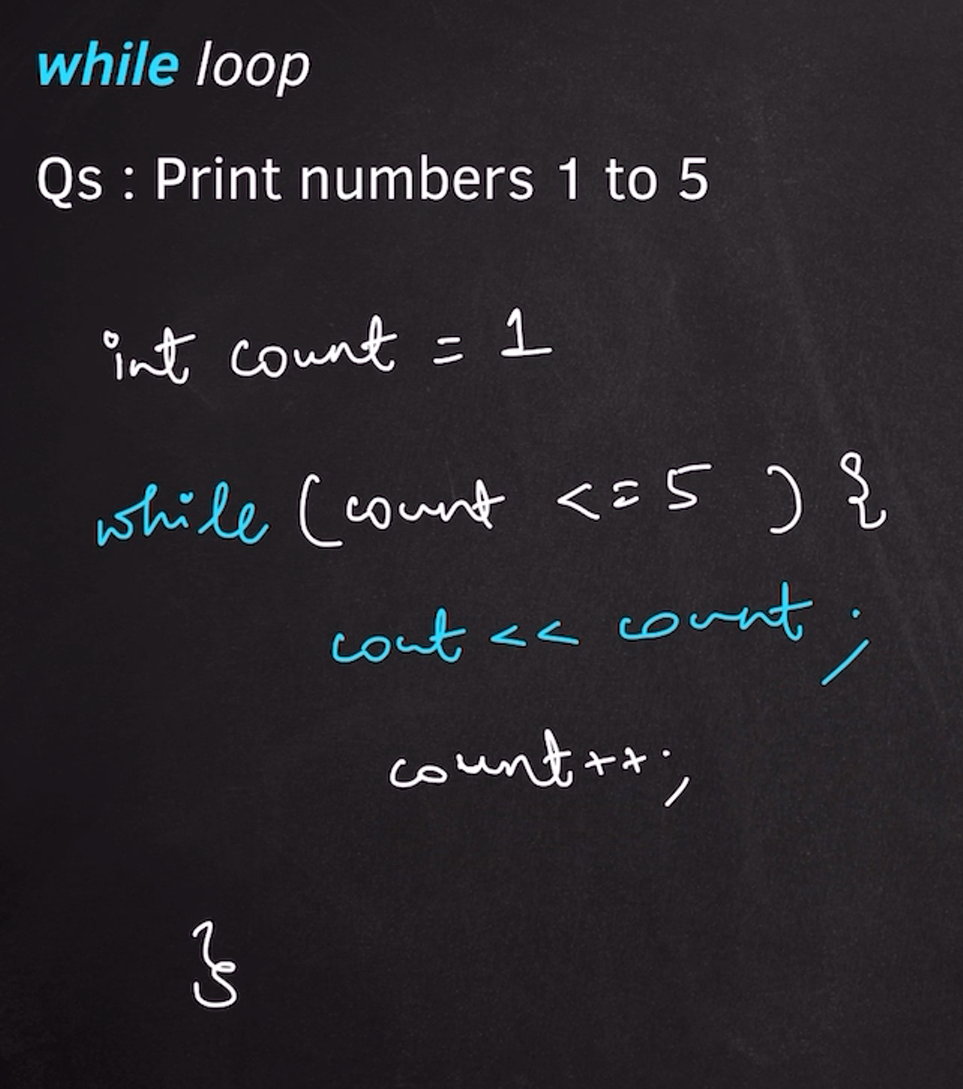 while loop
Qs : Print numbers 1 to 5
int count = 1
while (count <= 5 ) {
cout << count ;
count++;
}